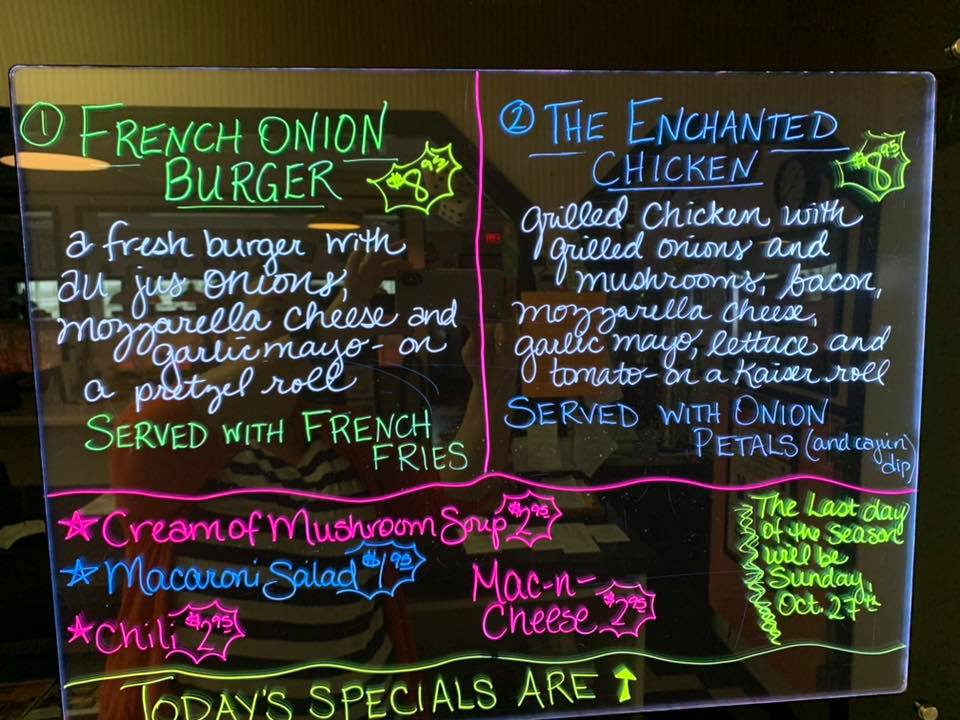 ① FRENCH ONION
BURGER
$8.95
a fresh burger with
au jus onions,
mozzarella cheese and
garlic mayo - on
a pretzel roll
SERVED WITH FRENCH
FRIES
② THE ENCHANTED
CHICKEN
$8.95
grilled chicken with
grilled onions and
mushrooms, bacon,
mozzarella cheese,
garlic mayo, lettuce and
tomato - on a Kaiser roll
SERVED WITH ONION
PETALS (and cajun
dip)
☆ Cream of Mushroom Soup $2.95
☆ Macaroni Salad $1.95
☆ Chili $2.95
Mac-n-
Cheese $2.95
The Last day
of the Season
will be
Sunday,
Oct. 27th
TODAY'S SPECIALS ARE ↑